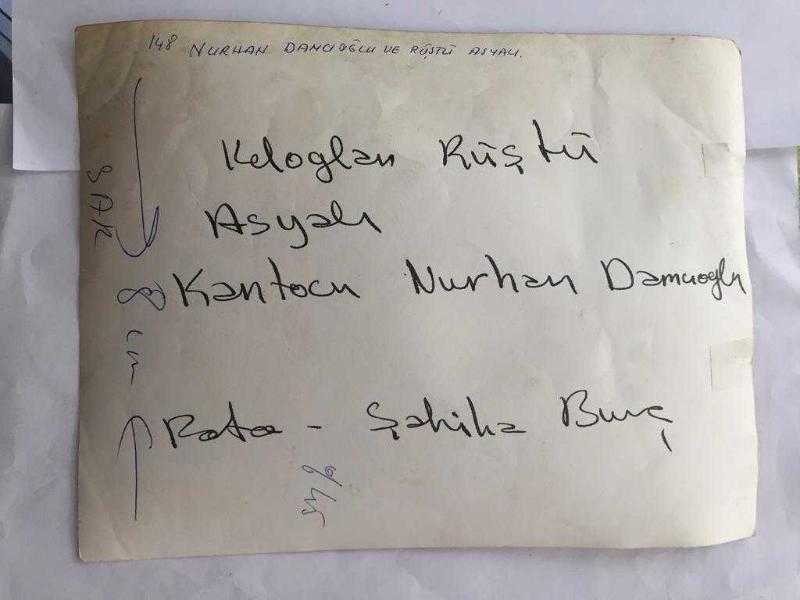 148 NURHAN DAMCIOĞLU VE RÜŞTÜ ASYALI.
Keloglan Rüştü
Asyalı
Kantocu Nurhan Damcıoglu
Foto - Şahika Burç
SAK
8 cm